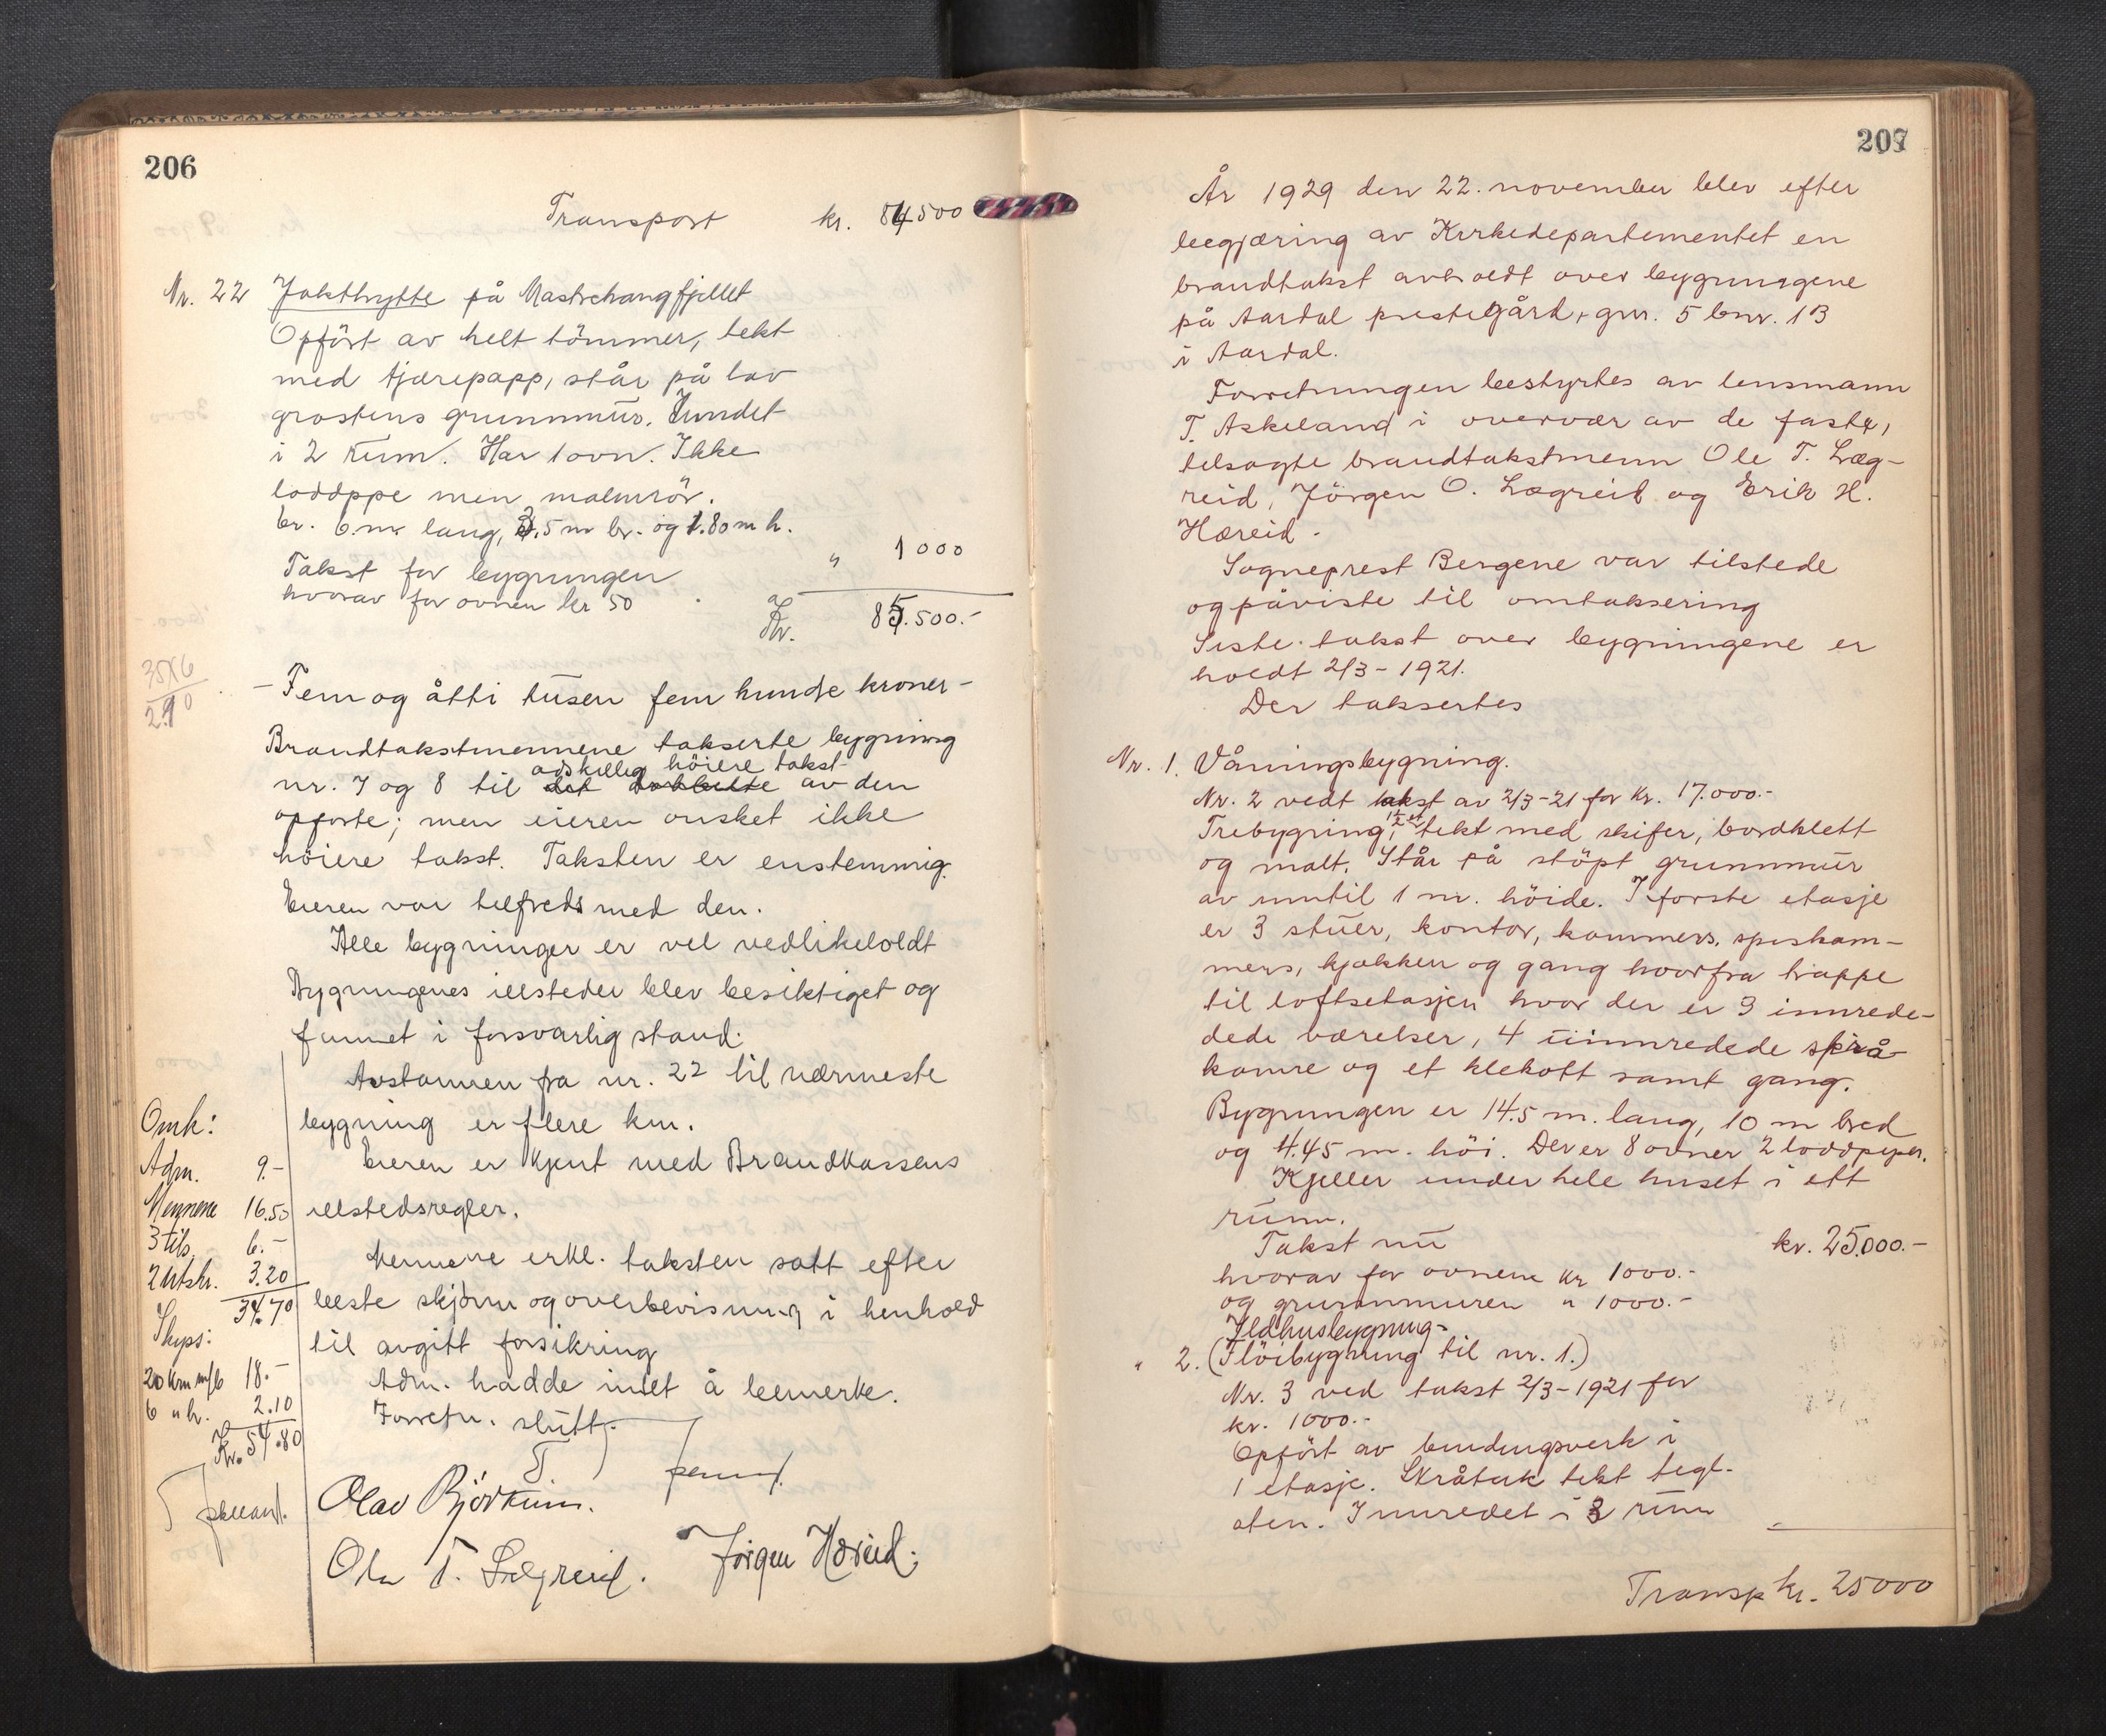 206
Transport kr. 84500
Nr. 22 Jakthytte på Mastrehangfjellet
Opfört av helt tömmer, tekt
med tjærepapp, står på lav
gråstens grunnmur. Inndelt
i 2 rum. Har 1 ovn. Ikke
loddppe men malmrör.
br. 6 m. lang, 3.5 m br. og 1.80 m h.
Takst for bygningen " 1000
hvorav for ovnen kr 50
Kr. 85.500.-
35X6
2.10
- Fem og åtti tusen fem hunde kroner -
Brandtakstmennene takserte bygning
adskillig höiere takst
nr. 7 og 8 til det dobbelte av den
opförte; men eieren önsket ikke
höiere takst. Taksten er enstemmig.
Eieren var tilfreds med den.
Alle bygninger er vel vedlikeholdt
Bygningenes ildsteder blev besiktiget og
funnet i forsvarlig stand.
Avstannen fra nr. 22 til nærmeste
bygning er flere km.
Eieren er kjent med Brandkassens
ildstedsregler.
Mennene erkl. taksten satt efter
beste skjönn og overbevisning i henhold
til avgitt forsikring
Adm. hadde intet å bemerke.
Forretn. slutt.
Omk:
Adm. 9.-
Mennene 16.50
3 tils. 6.-
2 Utskr. 3.20
34.70
Skyss:
20 km m/b 18.-
6 " h. 2.10
Kr. 54.80
Olav Björkum.
Ole T. Lægreid. Jörgen Hæreid.
207
År 1929 den 22. november blev efter
begjæring av Kirkedepartementet en
brandtakst avholdt over bygningene
på Aardal prestegård, gnr. 5 bnr. 1 B
i Aardal.
Forretningen bestyrtes av lensmann
T. Askeland i overvær av de faste,
tilsagte brandtakstmenn Ole T. Læg-
reid, Jörgen O. Lægreid og Erik H.
Hæreid.
Sogneprest Bergene var tilstede
og påviste til omtaksering
Siste takst over bygningene er
holdt 2/3 - 1921.
Der taksertes
Nr. 1. Våningsbygning.
Nr. 2 vedt takst av 2/3-21 for Kr. 17.000.-
Trebygning, 1 1/2 et. tekt med skifer, bordklett
og malt. Står på stöpt grunnmur
av inntil 1 m. höide. I förste etasje
er 3 stuer, kontor, kammers, spiskam-
mers, kjökken og gang hvorfra trappe
til loftsetasjen hvor der er 3 innrede-
dede værelser, 4 uinnredede skrå-
kamre og et klekott samt gang.
Bygningen er 14.5 m. lang, 10 m bred
og 4.45 m. höi. Der er 8 ovner 2 loddpiper.
Kjeller under hele huset i ett
rum.
Takst nu kr. 25.000.-
hvorav for ovnene kr 1000.-
og grunnmuren " 1000.-
Ildhusbygning -
" 2. (Flöibygning til nr. 1.)
Nr. 3 ved takst 2/3-1921 for
kr. 1000.-
Opfört av bindingsverk i
1 etasje. Skråtak tekt tegl-
sten. Innredet i 2 rum
Transp kr. 25000